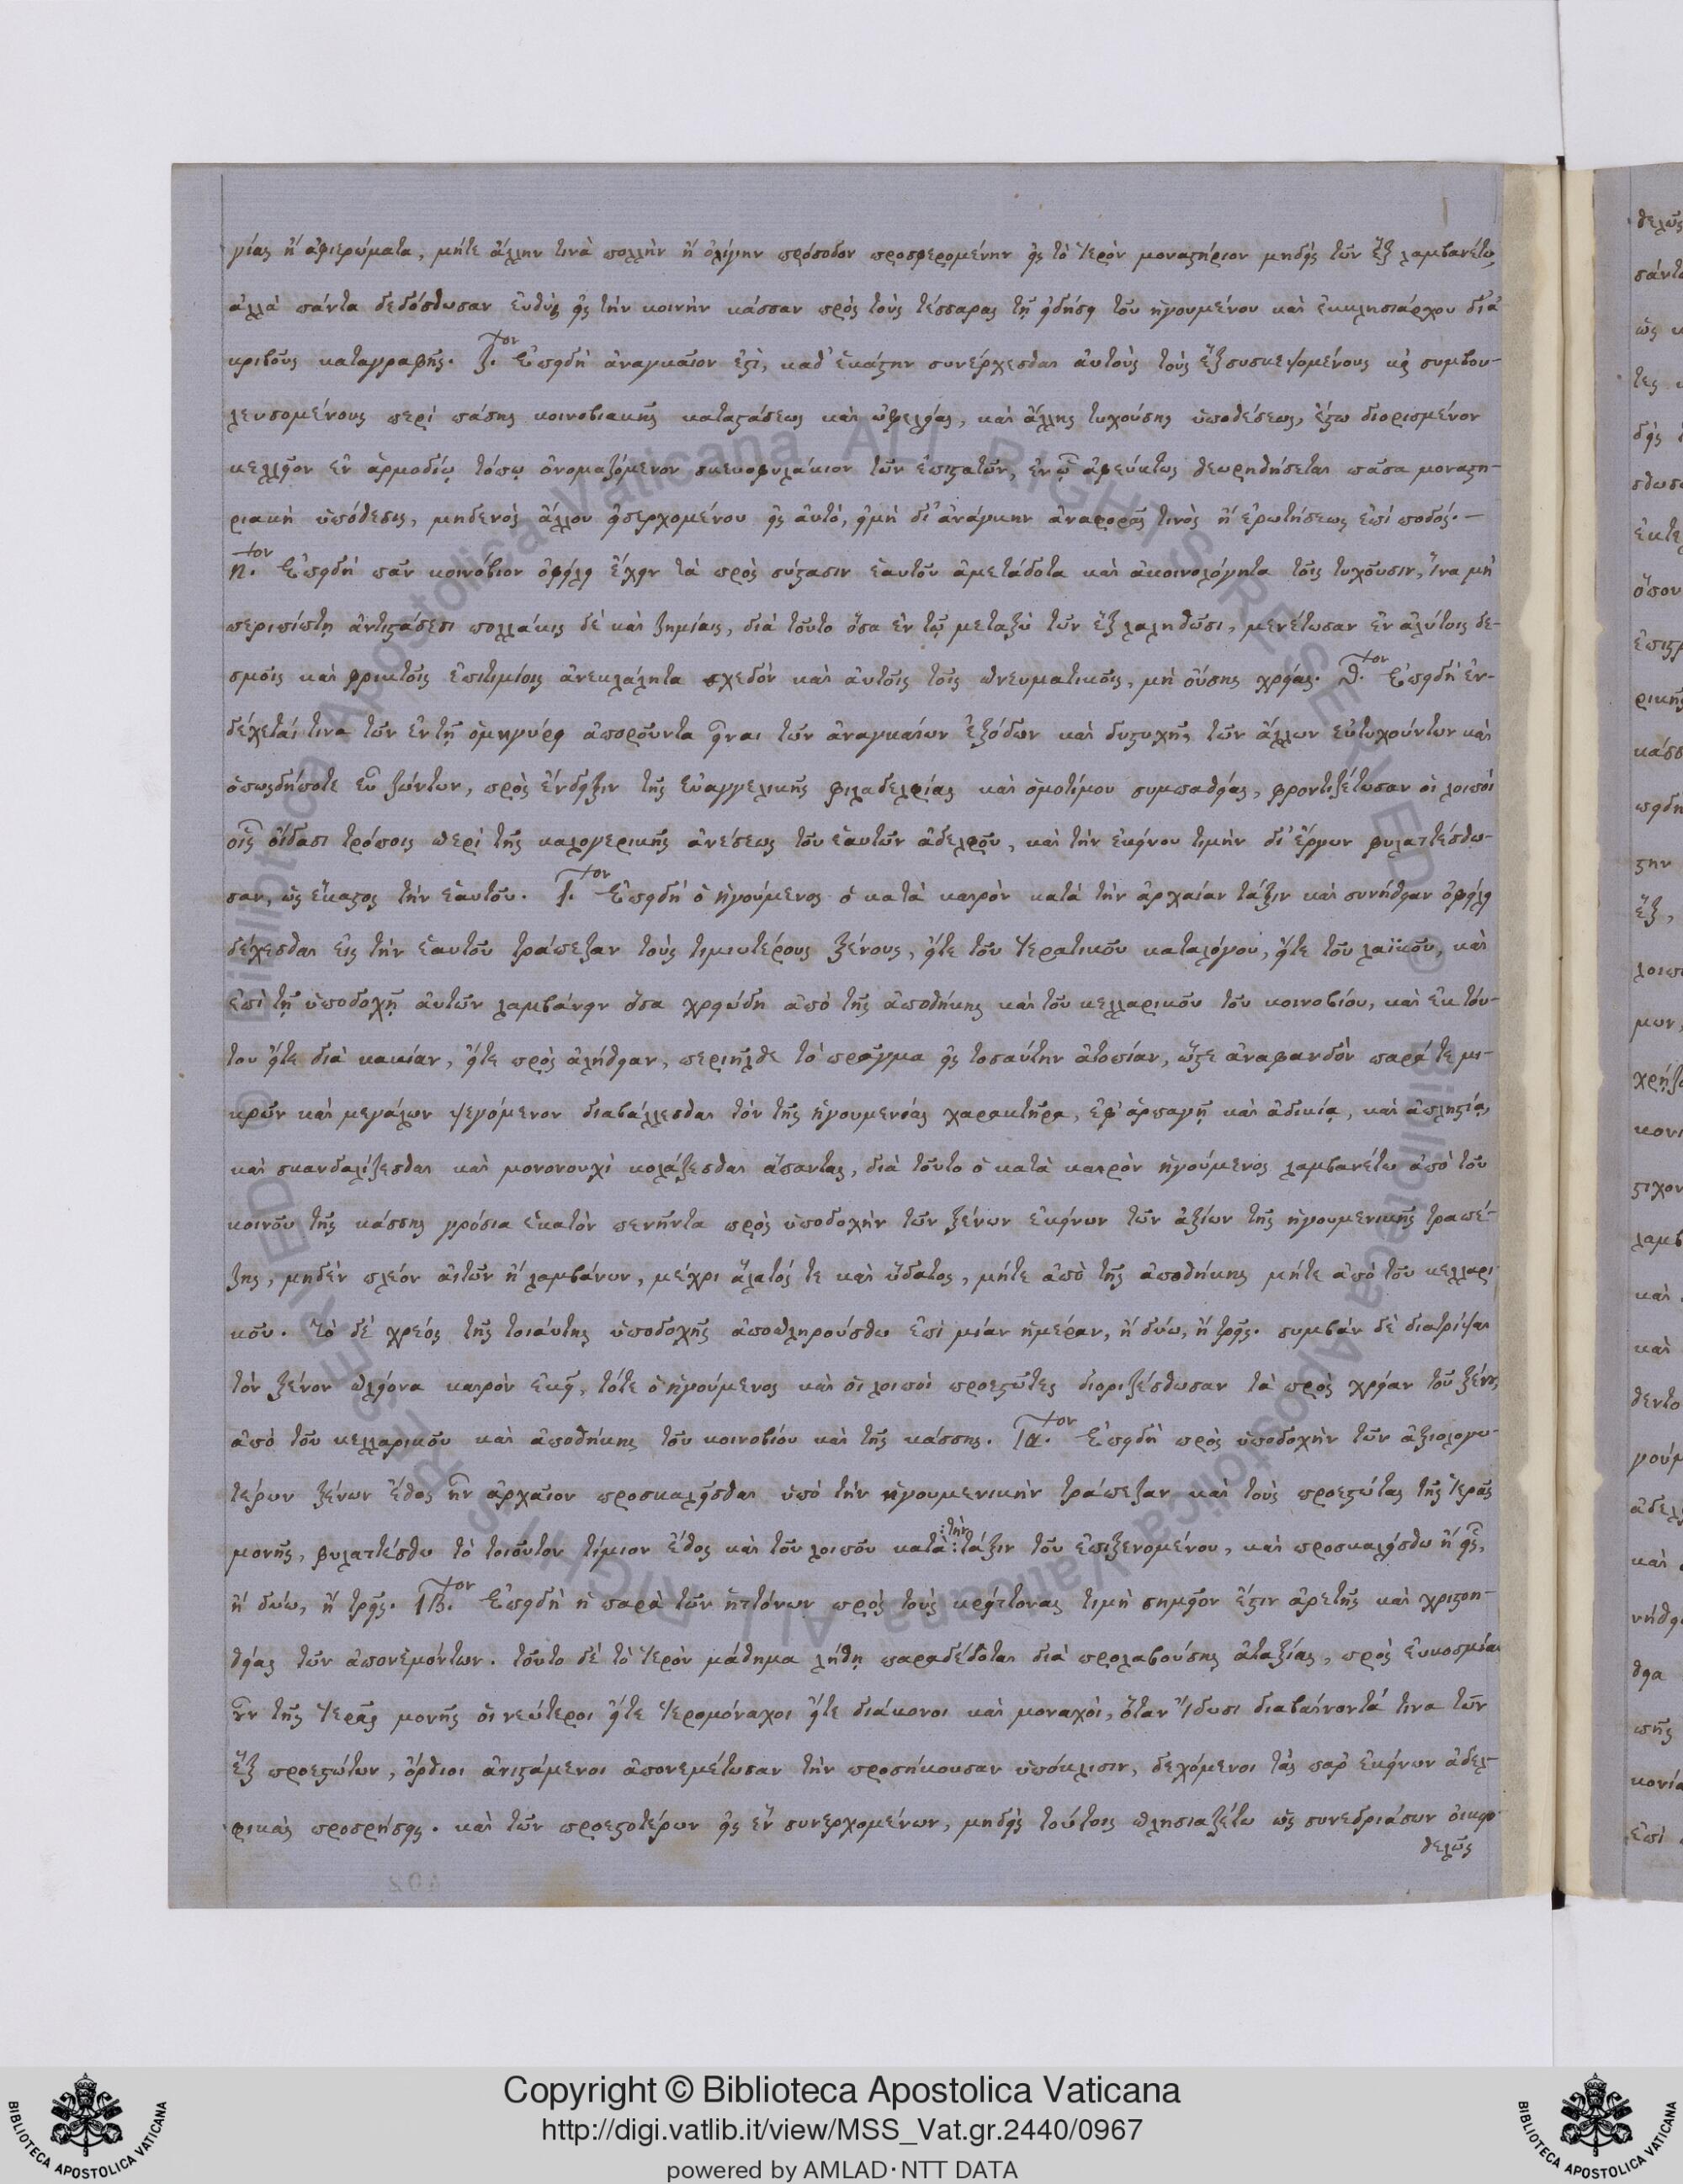 γίας ἢ ἀφιερώματα, μήτε ἄλλην τινὰ πολλὴν ἢ ὀλίγην πρόσοδον προσφερομένην εἰς τὸ ἱερὸν μοναστήριον μηδεὶς τῶν ἓξ λαμβανέτω,
ἀλλὰ πάντα δεδόσθωσαν εὐθὺς εἰς τὴν κοινὴν κάσσαν πρὸς τοὺς τέσσαρας τῇ εἰδήσει τοῦ ἡγουμένου καὶ ἐκκλησιάρχου δι' ἀ
κριβοῦς καταγραφῆς. ζ.ον Ἐπειδὴ ἀναγκαῖον ἐστὶ, καθ' ἑκάστην συνέρχεσθαι αὐτοὺς τοὺς ἓξ συσκεψομένους καὶ συμβου-
λευσομένους περὶ πάσης κοινοβιακῆς καταστάσεως καὶ ὠφελείας, καὶ ἄλλης τυχούσης ὑποθέσεως, ἔστω διορισμένον
κελλεῖον ἐν ἁρμοδίῳ τόπῳ ὀνομαζόμενον σκευοφυλάκιον τῶν ἐπιστατῶν, ἐν ᾧ ἀφεύκτως θεωρηθήσεται πᾶσα μοναστη-
ριακὴ ὑπόθεσις, μηδενὸς ἄλλου εἰσερχομένου εἰς αὐτό, εἰμὴ δι' ἀνάγκην ἀναφορᾶς τινὸς ἢ ἐρωτήσεως ἐπὶ ποδός.—
η.ον Ἐπειδὴ πᾶν κοινόβιον ὀφείλει ἔχειν τὰ πρὸς σύστασιν ἑαυτοῦ ἀμετάδοτα καὶ ἀκοινολόγητα τοῖς τυχοῦσιν, ἵνα μὴ
περιπίπτῃ ἀντιστάσεσι πολλάκις δὲ καὶ ζημίαις, διὰ τοῦτο ὅσα ἐν τῷ μεταξὺ τῶν ἓξ λαληθῶσι, μενέτωσαν ἐν ἀλύτοις δε-
σμοῖς καὶ φρικτοῖς ἐπιτιμίοις ἀνεκλάλητα σχεδὸν καὶ αὐτοῖς τοῖς πνευματικοῖς, μὴ οὔσης χρείας. θ.ον Ἐπειδὴ ἐν-
δέχεταί τινα τῶν ἐν τῇ ὁμηγύρει ἀποροῦντα εἶναι τῶν ἀναγκαίων ἐξόδων καὶ δυστυχῆ, τῶν ἄλλων εὐτυχούντων καὶ
ὁπωσδήποτε εὖ ζώντων, πρὸς ἔνδειξιν τῆς εὐαγγελικῆς φιλαδελφίας καὶ ὁμοτίμου συμπαθείας, φροντιζέτωσαν οἱ λοιποὶ
οἷς οἴδασι τρόποις περὶ τῆς καλογερικῆς ἀνέσεως τοῦ ἑαυτῶν ἀδελφοῦ, καὶ τὴν ἐκείνου τιμὴν δι' ἔργων φυλαττέσθω-
σαν, ὡς ἕκαστος τὴν ἑαυτοῦ. ι.ον Ἐπειδὴ ὁ ἡγούμενος ὁ κατὰ καιρὸν κατὰ τὴν ἀρχαίαν τάξιν καὶ συνήθειαν ὀφείλει
δέχεσθαι εἰς τὴν ἑαυτοῦ τράπεζαν τοὺς τιμιωτέρους ξένους, εἴτε τοῦ ἱερατικοῦ καταλόγου, εἴτε τοῦ λαϊκοῦ, καὶ
ἐπὶ τῇ ὑποδοχῇ αὐτῶν λαμβάνειν ὅσα χρειώδη ἀπὸ τῆς ἀποθήκης καὶ τοῦ κελλαρικοῦ τοῦ κοινοβίου, καὶ ἐκ τού-
του εἴτε διὰ κακίαν, εἴτε πρὸς ἀλήθειαν, περιῆλθε τὸ πρᾶγμα εἰς τοσαύτην ἀτοπίαν, ὥστε ἀναφανδὸν παρά τε μι-
κρῶν καὶ μεγάλων ψεγόμενον διαβάλλεσθαι τὸν τῆς ἡγουμενείας χαρακτῆρα, ἐφ' ἁρπαγῇ καὶ ἀδικίᾳ, καὶ ἀπληστίᾳ,
καὶ σκανδαλίζεσθαι καὶ μονονουχὶ κολάζεσθαι ἅπαντας, διὰ τοῦτο ὁ κατὰ καιρὸν ἡγούμενος λαμβανέτω ἀπὸ τοῦ
κοινοῦ τῆς κάσσης γρόσια ἑκατὸν πενῆντα πρὸς ὑποδοχὴν τῶν ξένων ἐκείνων τῶν ἀξίων τῆς ἡγουμενικῆς τραπέ-
ζης, μηδὲν πλέον αἰτῶν ἢ λαμβάνων, μέχρι ἅλατός τε καὶ ὕδατος, μήτε ἀπὸ τῆς ἀποθήκης μήτε ἀπὸ τοῦ κελλαρι
κοῦ. Τὸ δὲ χρεὸς τῆς τοιαύτης ὑποδοχῆς ἀποπληρούσθω ἐπὶ μίαν ἡμέραν, ἢ δύω, ἢ τρεῖς. συμβὰν δὲ διατρίψαι
τὸν ξένον πλείονα καιρὸν ἐκεῖ, τότε ὁ ἡγούμενος καὶ οἱ λοιποὶ προεστῶτες διοριζέσθωσαν τὰ πρὸς χρείαν τοῦ ξένου
ἀπὸ τοῦ κελλαρικοῦ καὶ ἀποθήκης τοῦ κοινοβίου καὶ τῆς κάσσης. ια.ον Ἐπειδὴ πρὸς ὑποδοχὴν τῶν ἀξιολογω-
τέρων ξένων ἔθος ἦν ἀρχαῖον προσκαλεῖσθαι ὑπὸ τὴν ἡγουμενικὴν τράπεζαν καὶ τοὺς προεστῶτας τῆς ἱερᾶς
μονῆς, φυλαττέσθω τὸ τοιοῦτον τίμιον ἔθος καὶ τοῦ λοιποῦ κατὰ :τὴν: τάξιν τοῦ ἐπιξενομένου, καὶ προσκαλείσθω ἢ εἷς,
ἢ δύω, ἢ τρεῖς. ιβ.ον Ἐπειδὴ ἡ παρὰ τῶν ἡττόνων πρὸς τοὺς κρείττονας τιμὴ σημεῖον ἐστιν ἀρετῆς καὶ χριστοη-
θείας τῶν ἀπονεμόντων. τοῦτο δὲ τὸ ἱερὸν μάθημα λήθῃ παραδέδοται διὰ προλαβούσης ἀταξίας, πρὸς εὐκοσμίαν
οὖν τῆς ἱερᾶς μονῆς οἱ νεώτεροι εἴτε ἱερομόναχοι εἴτε διάκονοι καὶ μοναχοὶ, ὅταν ἴδωσι διαβαίνοντά τινα τῶν
ἓξ προεστώτων, ὄρθιοι ἀνιστάμενοι ἀπονεμέτωσαν τὴν προσήκουσαν ὑπόκλισιν, δεχόμενοι τὰς παρ' ἐκείνων ἀδελ-
φικὰς προσρήσεις. καὶ τῶν προεστοτέρων εἰς ἓν συνερχομένων, μηδεὶς τούτοις πλησιαζέτω ὡς συνεδριάσων οἰκειο
θελῶς
Copyright © Biblioteca Apostolica Vaticana
http://digi.vatlib.it/view/MSS_Vat.gr.2440/0967
powered by AMLAD·NTT DATA